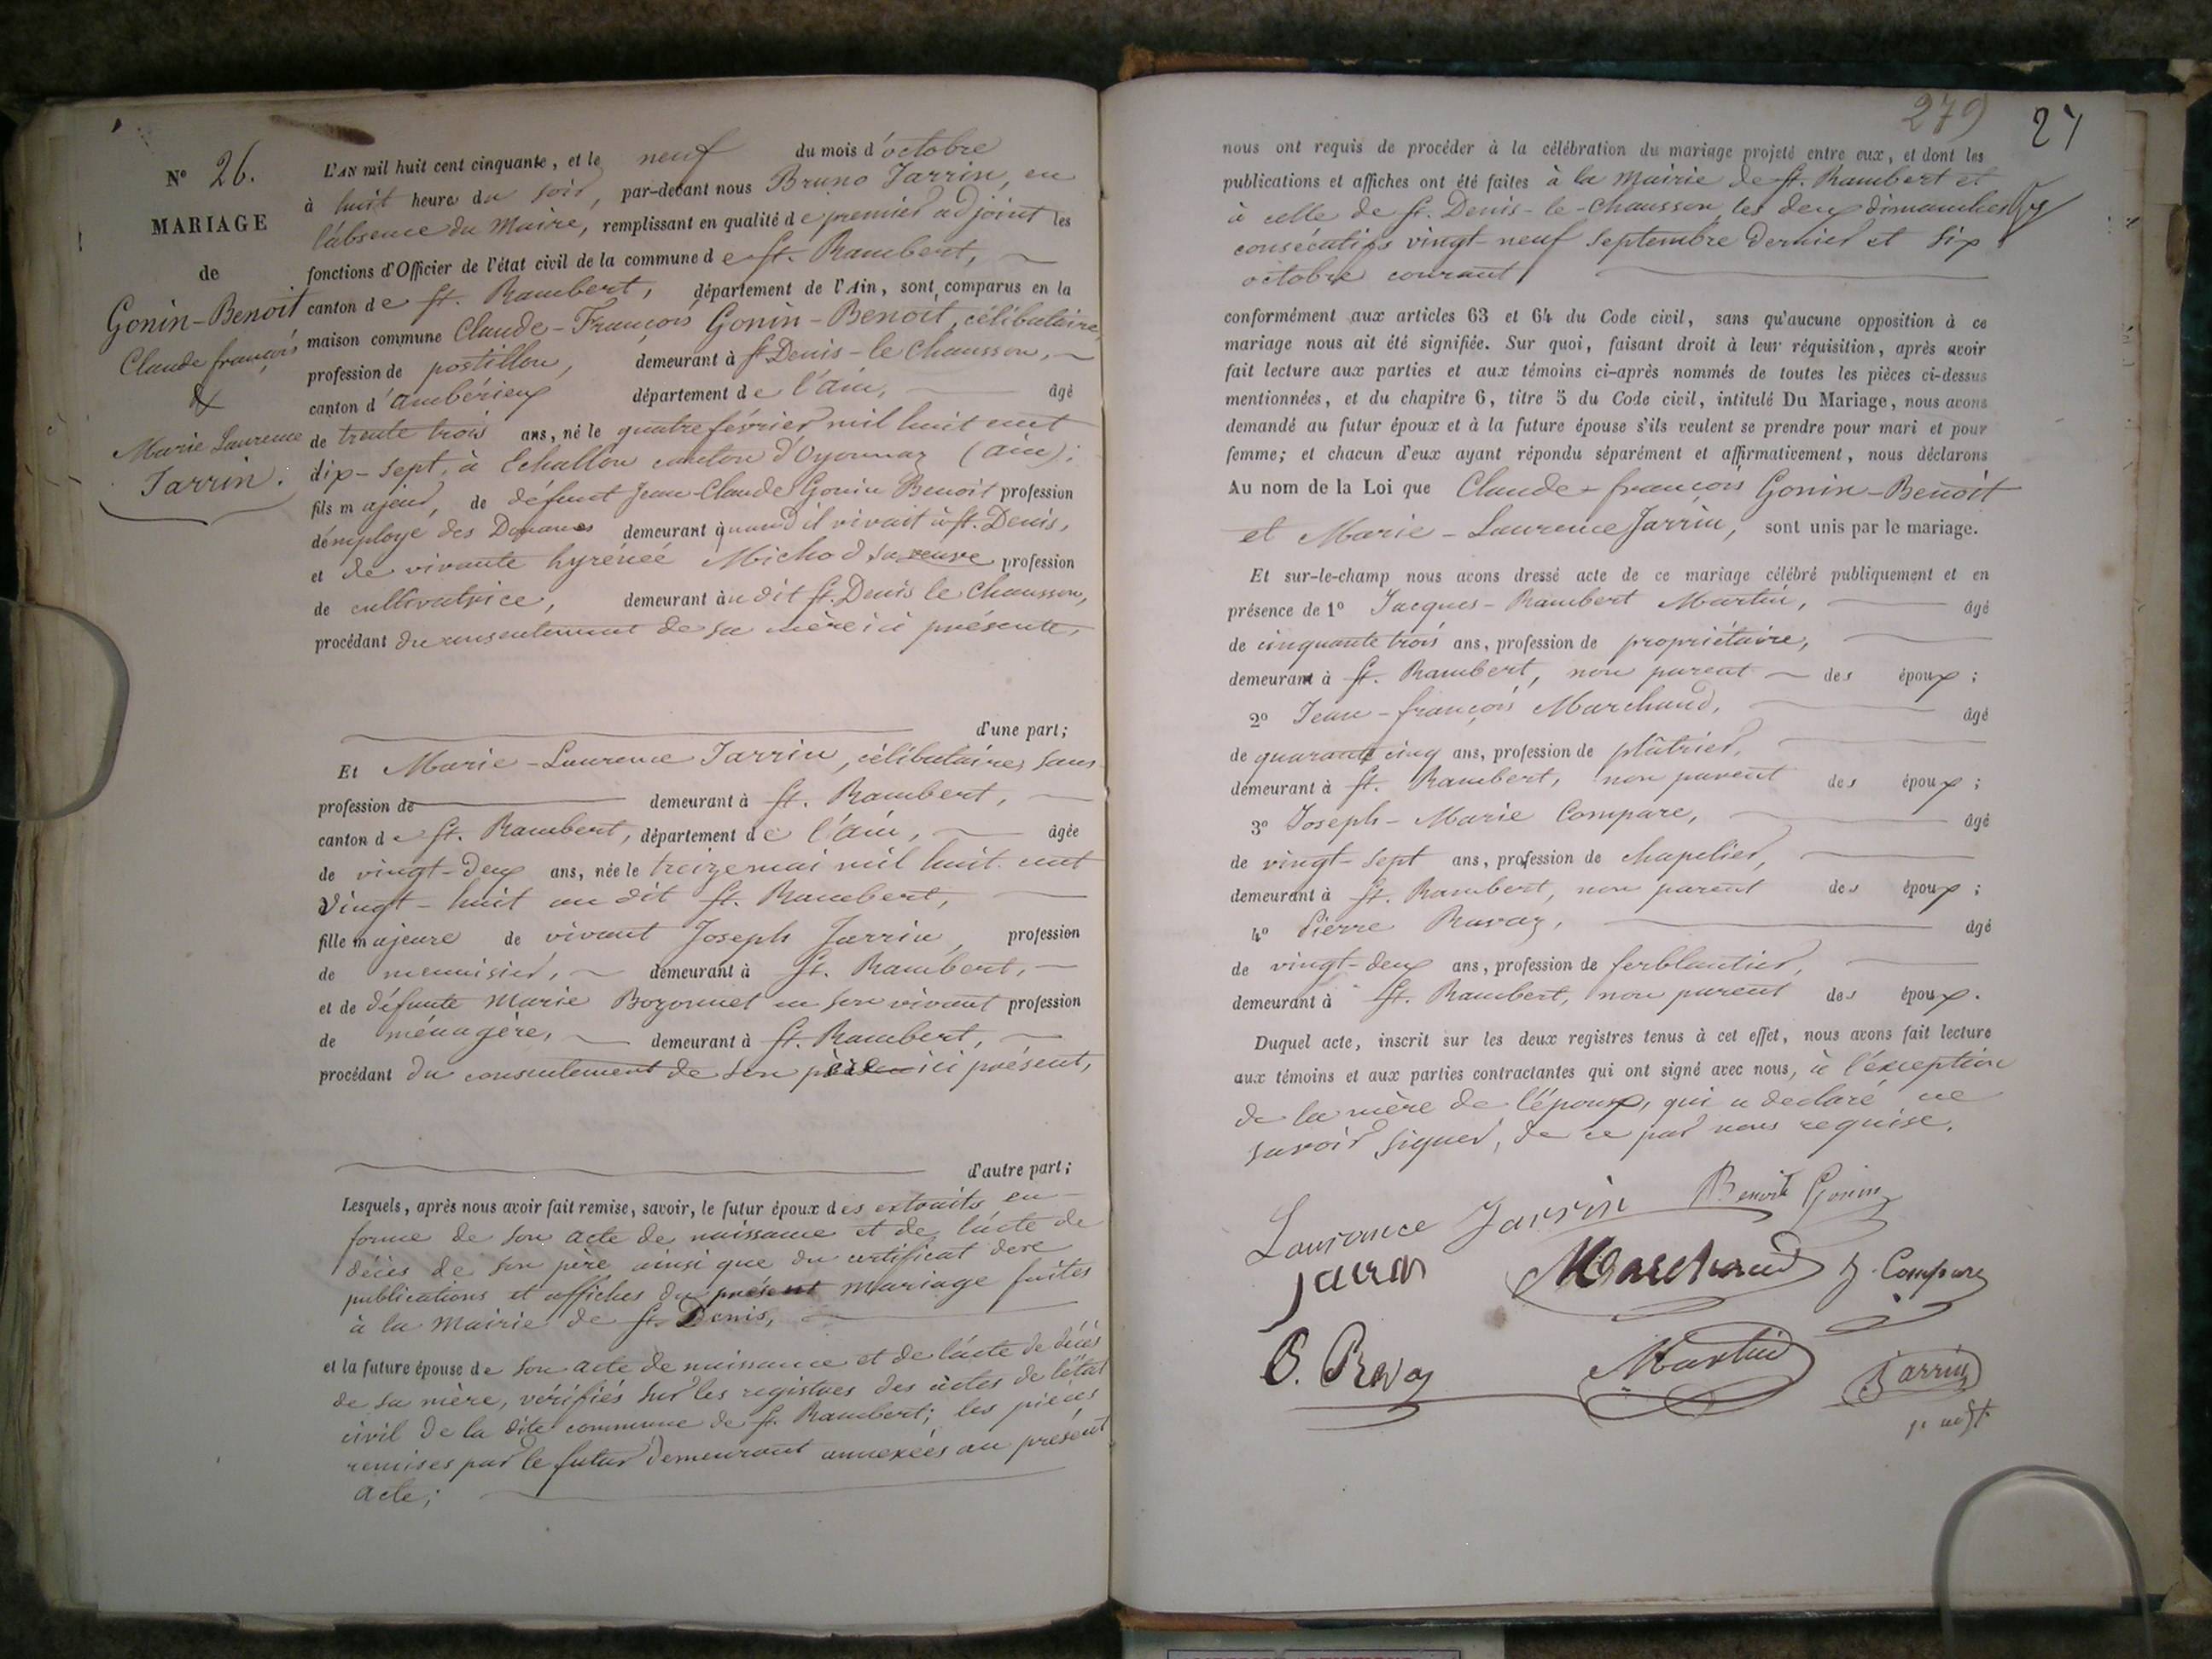 N° 26.
MARIAGE
de
Gonin-Benoit
Claude françois
&
Marie Laurence
Jarrin.
L'AN mil huit cent cinquante, et le neuf du mois d'octobre
à huit heures du soir, par-devant nous Bruno Jarrin, en
l'absence du Maire, remplissant en qualité de premier adjoint les
fonctions d'Officier de l'état civil de la commune de St. Rambert,
canton de St. Rambert, département de l'Ain, sont comparus en la
maison commune Claude-François Gonin-Benoit, célibataire,
profession de postillon, demeurant à St Denis-le Chausson,
canton d'ambérieux département de l'ain, âgé
de trente trois ans, né le quatre février mil huit cent
dix-sept, à Echallon canton d'Oyonnaz (ain);
fils majeur, de défunt Jean-Claude Gonin Benoit profession
d'employé des Douanes demeurant quand il vivait à St. Denis,
et de vivante hyrénéé Michod sa veuve profession
de cultivatrice, demeurant au dit St. Denis le Chausson,
procédant du consentement de sa mère ici présente,
d'une part;
Et Marie-Laurence Jarrin, célibataire, sans
profession de demeurant à St. Rambert,
canton de St. Rambert, département de l'ain, âgée
de vingt-deux ans, née le treize mai mil huit cent
vingt-huit au dit St. Rambert,
fille majeure de vivant Joseph Jarrin, profession
de menuisier, demeurant à St. Rambert,
et de défunte Marie Bozonnet en son vivant profession
de ménagère, demeurant à St. Rambert,
procédant du consentement de son père ici présent,
d'autre part;
Lesquels, après nous avoir fait remise, savoir, le futur époux des extraits en
forme de son acte de naissance et de l'acte de
décès de son père ainsi que du certificat de
publications et affiches du présent mariage faites
à la Mairie de St. Denis,
et la future épouse de son acte de naissance et de l'acte de décès
de sa mère, vérifiés sur les registres des actes de l'état
civil de la dite commune de St. Rambert; les pièces
remises par le futur demeurant annexées au présent
acte;
279 27
nous ont requis de procéder à la célébration du mariage projeté entre eux, et dont les
publications et affiches ont été faites à la Mairie de St. Rambert et
à celle de St. Denis-le-Chausson, les deux dimanches
consécutifs vingt-neuf Septembre dernier et six
octobre courant,
conformément aux articles 63 et 64 du Code civil, sans qu'aucune opposition à ce
mariage nous ait été signifiée. Sur quoi, faisant droit à leur réquisition, après avoir
fait lecture aux parties et aux témoins ci-après nommés de toutes les pièces ci-dessus
mentionnées, et du chapitre 6, titre 5 du Code civil, intitulé Du Mariage, nous avons
demandé au futur époux et à la future épouse s'ils veulent se prendre pour mari et pour
femme; et chacun d'eux ayant répondu séparément et affirmativement, nous déclarons
Au nom de la Loi que Claude-françois Gonin-Benoit
et Marie-Laurence Jarrin, sont unis par le mariage.
Et sur-le-champ nous avons dressé acte de ce mariage célébré publiquement et en
présence de 1° Jacques-Rambert Martin, âgé
de cinquante trois ans, profession de propriétaire,
demeurant à St. Rambert, non parent des époux;
2° Jean-françois Marchand, âgé
de quarante cinq ans, profession de plâtrier,
demeurant à St. Rambert, non parent des époux;
3° Joseph-Marie Compare, âgé
de vingt-sept ans, profession de chapelier,
demeurant à St. Rambert, non parent des époux;
4° Pierre Ravaz, âgé
de vingt-deux ans, profession de ferblantier,
demeurant à St. Rambert, non parent des époux.
Duquel acte, inscrit sur les deux registres tenus à cet effet, nous avons fait lecture
aux témoins et aux parties contractantes qui ont signé avec nous, à l'exception
de la mère de l'époux, qui a déclaré ne
savoir signer, de ce par nous requise.
Laurance Jarrin Benoit Gonin
Jarrin Marchand J. Compare
Martin Jarrin